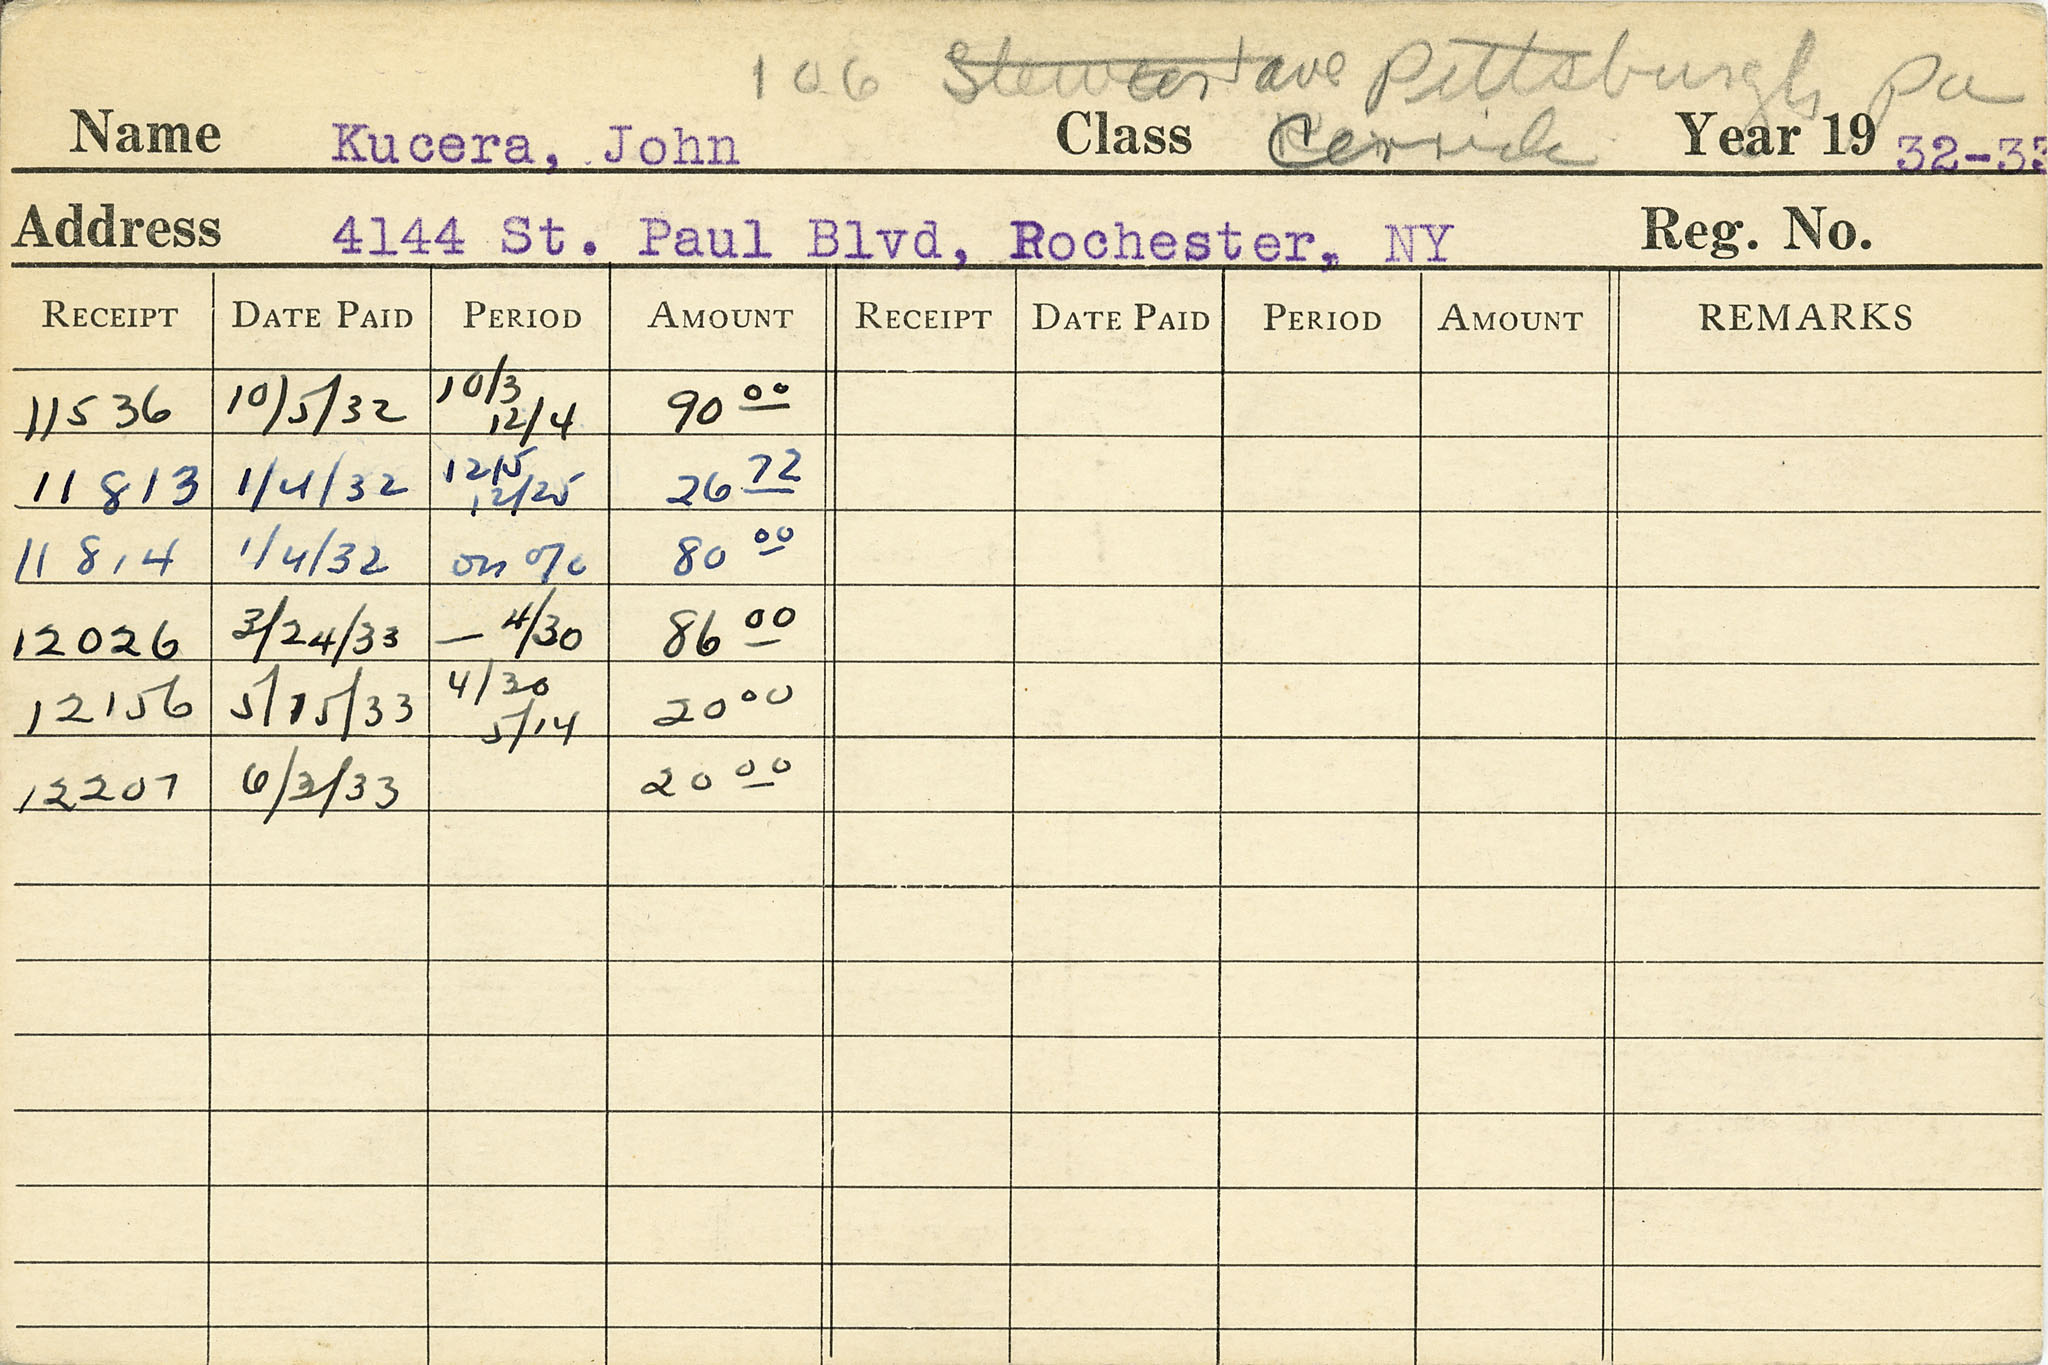 106 Stewart ave Pittsburgh Pa
Name Kucera, John Class Carrick Year 19 32-33
Address 4144 St. Paul Blvd, Rochester, NY Reg. No.
RECEIPT DATE PAID PERIOD AMOUNT RECEIPT DATE PAID PERIOD AMOUNT REMARKS
11536 10/5/32 10/3 12/4 90 00
11813 1/4/32 12/5 12/25 26 72
11814 1/4/32 on o/c 80 00
12026 3/24/33 — 4/30 86 00
12156 5/15/33 4/30 5/14 20 00
12207 6/2/33 20 00